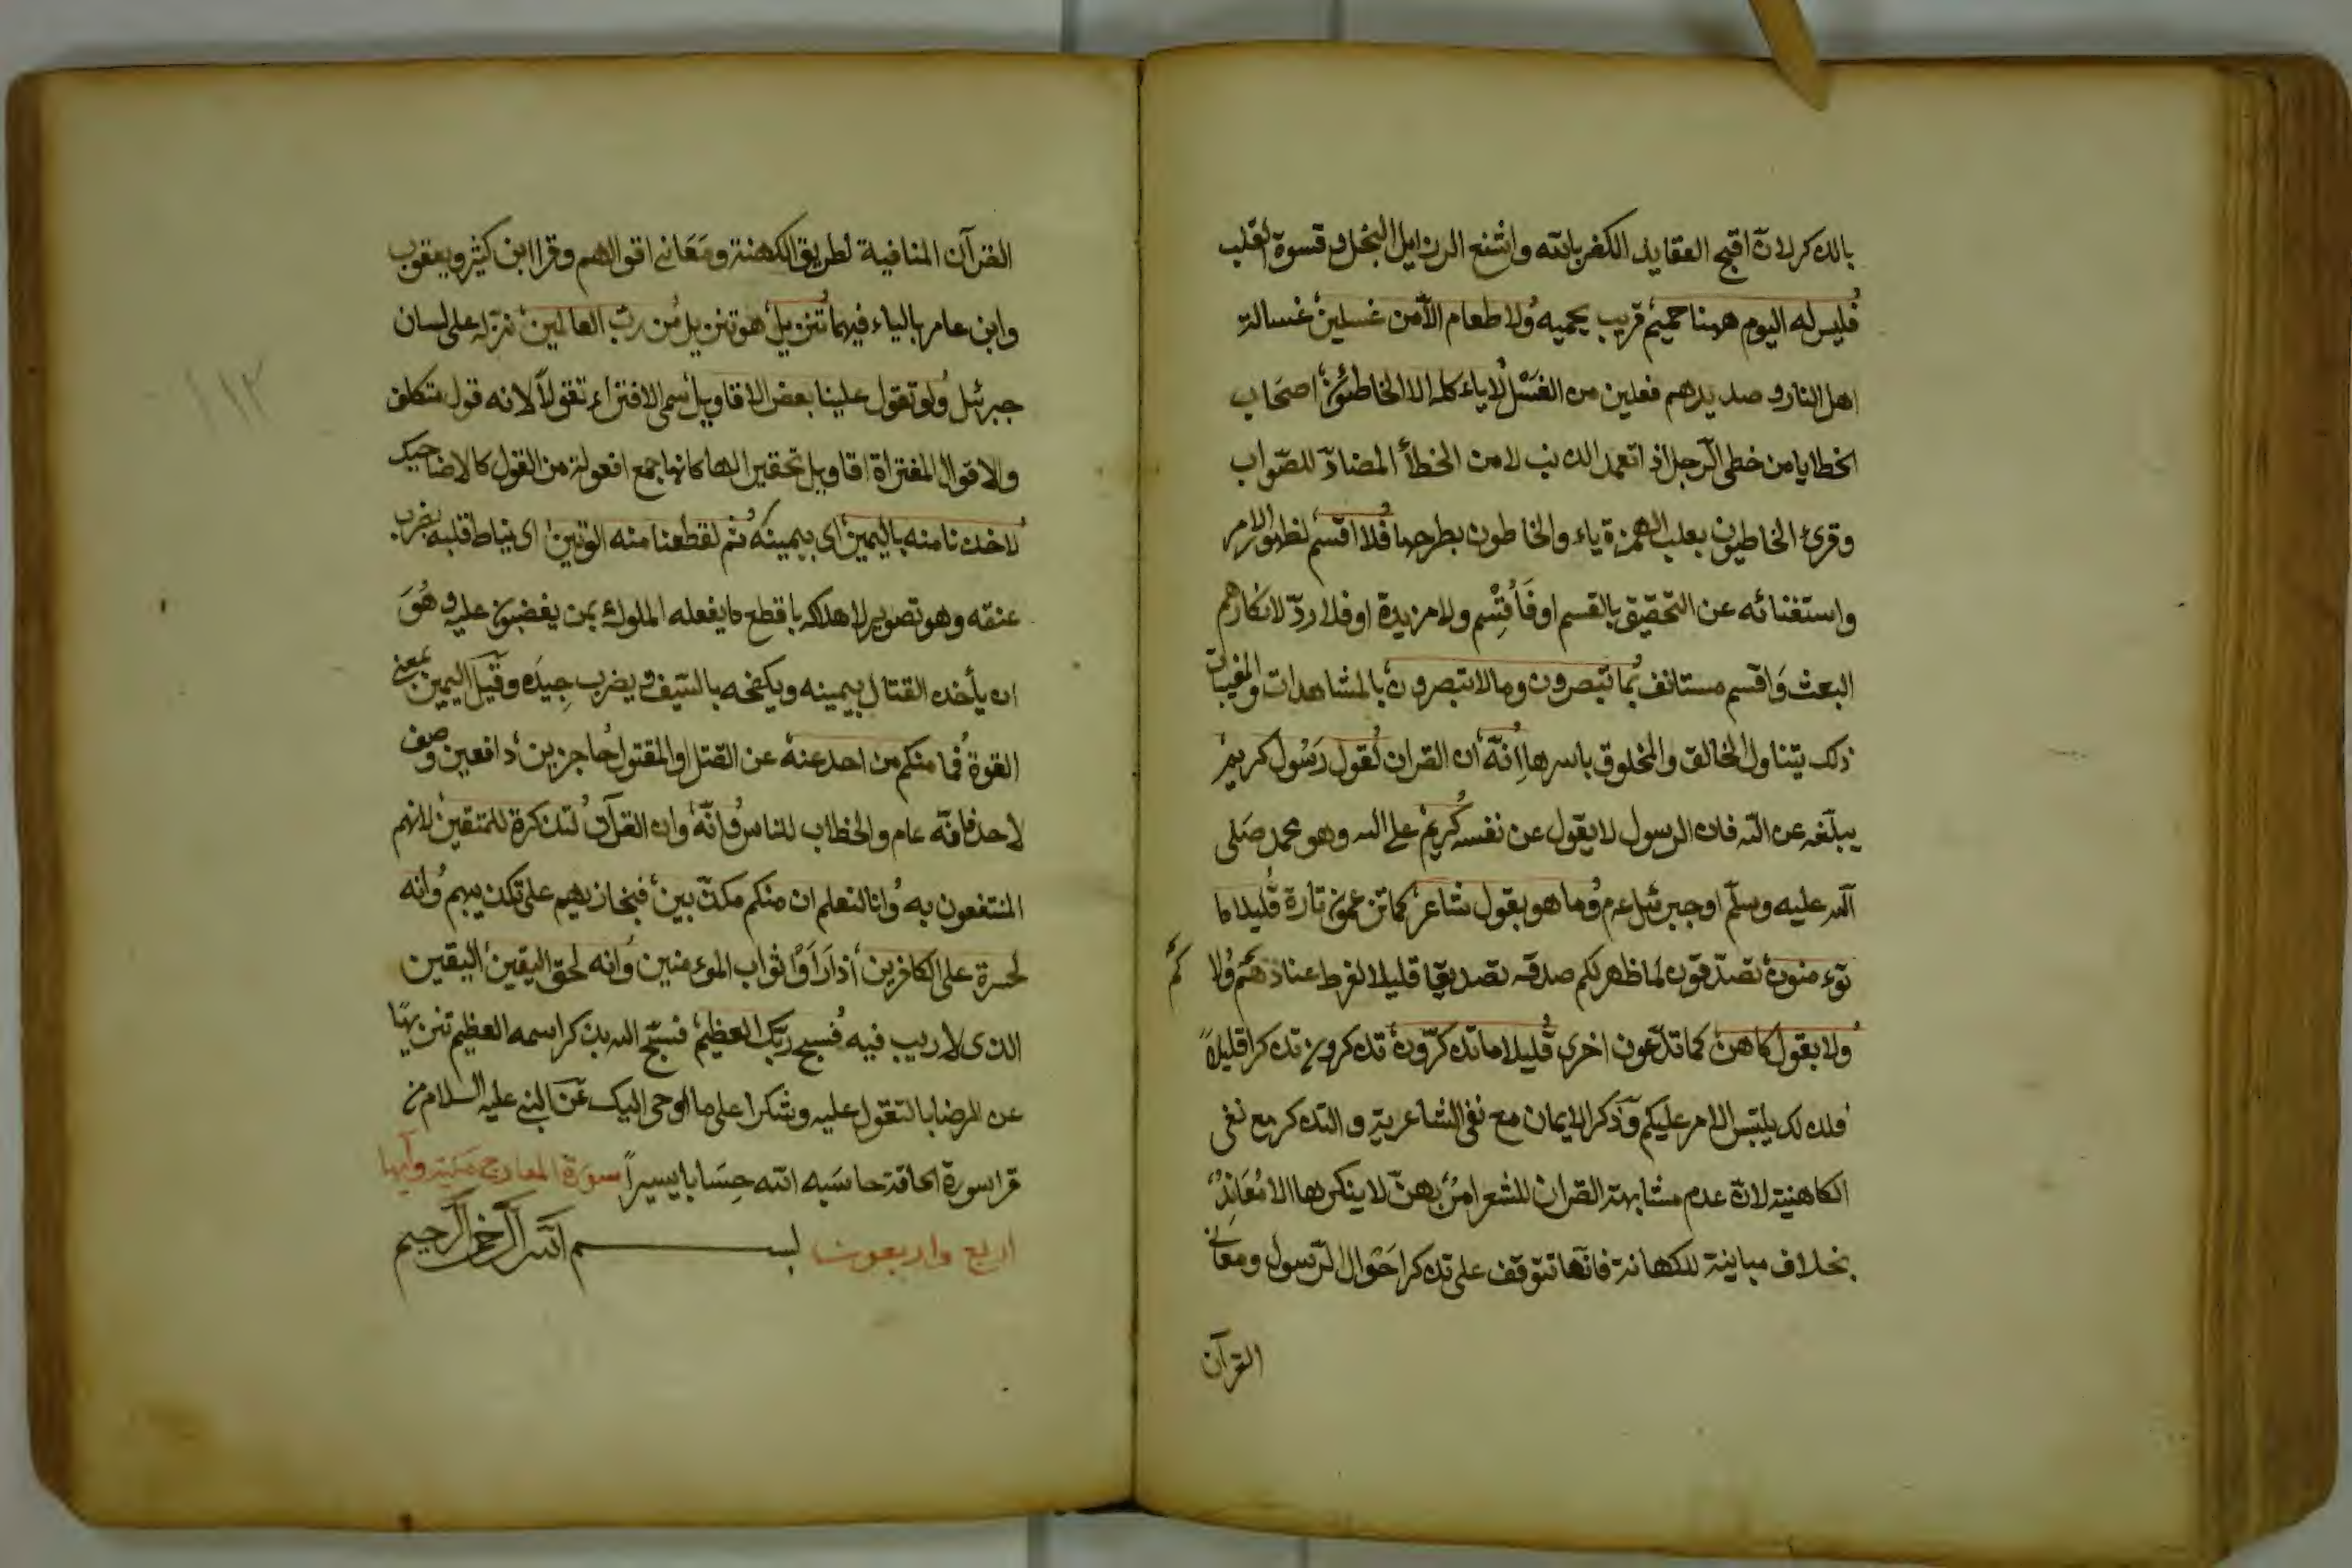 بالذكر لان اقبح العقايد الكفر بالله واشنع الرذايل البخل وقسوة القلب
فليس له اليوم ههنا حميم قريب يحميه ولا طعام الا من غسلين غسالة
اهل النار وصديدهم فعلين من الغسل لا ياءكله الا الخاطئون اصحاب
الخطايا من خطى الرجل اذا تعمد الذنب لا من الخطأ المضاد للصواب
وقرئ الخاطيون بقلب الهمزة ياء والخاطون بطرحها فلا اقسم لظهور الامر
واستغنائه عن التحقيق بالقسم او فَأُقْسِم ولا مزيدة او فلا ردّ لانكارهم
البعث وَاقسم مستانف بما تبصرون وما لا تبصرون بالمشاهدات والمغيبات
ذلك يتناول الخالق والمخلوق باسرها انّه ان القران لقول رسُول كريم
يبلّغه عن الله فان الرسول لا يقول عن نفسه كريم على الله وهو محمد صَلى
الله عليه وسلّم او جبرئيل عم وما هو بقول شاعر كما تزعمون تارة قليلا ما
توء منون تصدّقون لما ظهر لكم صدقه تصديقا قليلا لفرط عنادهم ولا
كُم
ولا بقول كاهن كما تدّعون اخرى قليلا ما تذكّرون تذكرون تذكرا قليلاً
فلذلك يلتبس الامر عليكم وذكر الايمان مع نفى الشاعرية والتذكر مع نفى
الكاهنية لانّ عدم مشابهة القران للشعر امرٌ بهن لا ينكرها الا مُعَانِدٌ
بخلاف مباينة للكهانة فانّها تتوقف على تذكر احَوال الرّسول ومعَاني
القرآن
القرآن المنافية لطريق الكهنة ومَعَاني اقوالهم وقرا ابن كثير ويعقوب
وابن عامر بالياء فيهما تنزيل هو تنزيل من ربّ العالمين نزّله على لسان
جبرئيل ولو تقول علينا بعض الاقاويل سمى الافتراء تقولاً لانه قول متكلف
والاقوال المفتراة اقاويل تحقيرا لها كانها جمع افعولة من القول كالاضاحيك
لاخذنا منه باليمين اى بيمينه ثم لقطعنا منه الوتين اى نياط قلبه بضرب
عنقه وهو تصوير لاهلاكه باقطع ما يفعله الملوك بمن يغضبون عليه وهُوَ
ان يأخذ القتال بيمينه ويكفحه بالسّيف ويضرب جِيدَه وقيل اليمين بمعنى
القوة فما منكم من احد عنه عن القتل او المقتول حَاجزين دافعين وصف
لاحد فانّه عام والخطاب للناس وانّه وان القرآن لتذكرة للمتقين لانهم
المنتفعون به وانا لنعلم ان منكم مكذّبين فنجازيهم على تكذيبهم وانه
لحسرة على الكافرين اذارَاَوْا ثواب الموء منين وانه لحق اليقين اليقين
الذى لا ريب فيه فسبح باسم ربّك العظيم فسبّح الله بذكر اسمه العظيم تنزيهًا
عن الرضا بالتقول عليه وشكرا على ما اوحى اليك عَن النبى عليه السلام من
قرا سورة الحاقة حاسَبه الله حِسَابا يسيراً سورة المعارج مكية وآيها
اربع واربعون بسم الله الرّحمن الرّحيم
١١٢